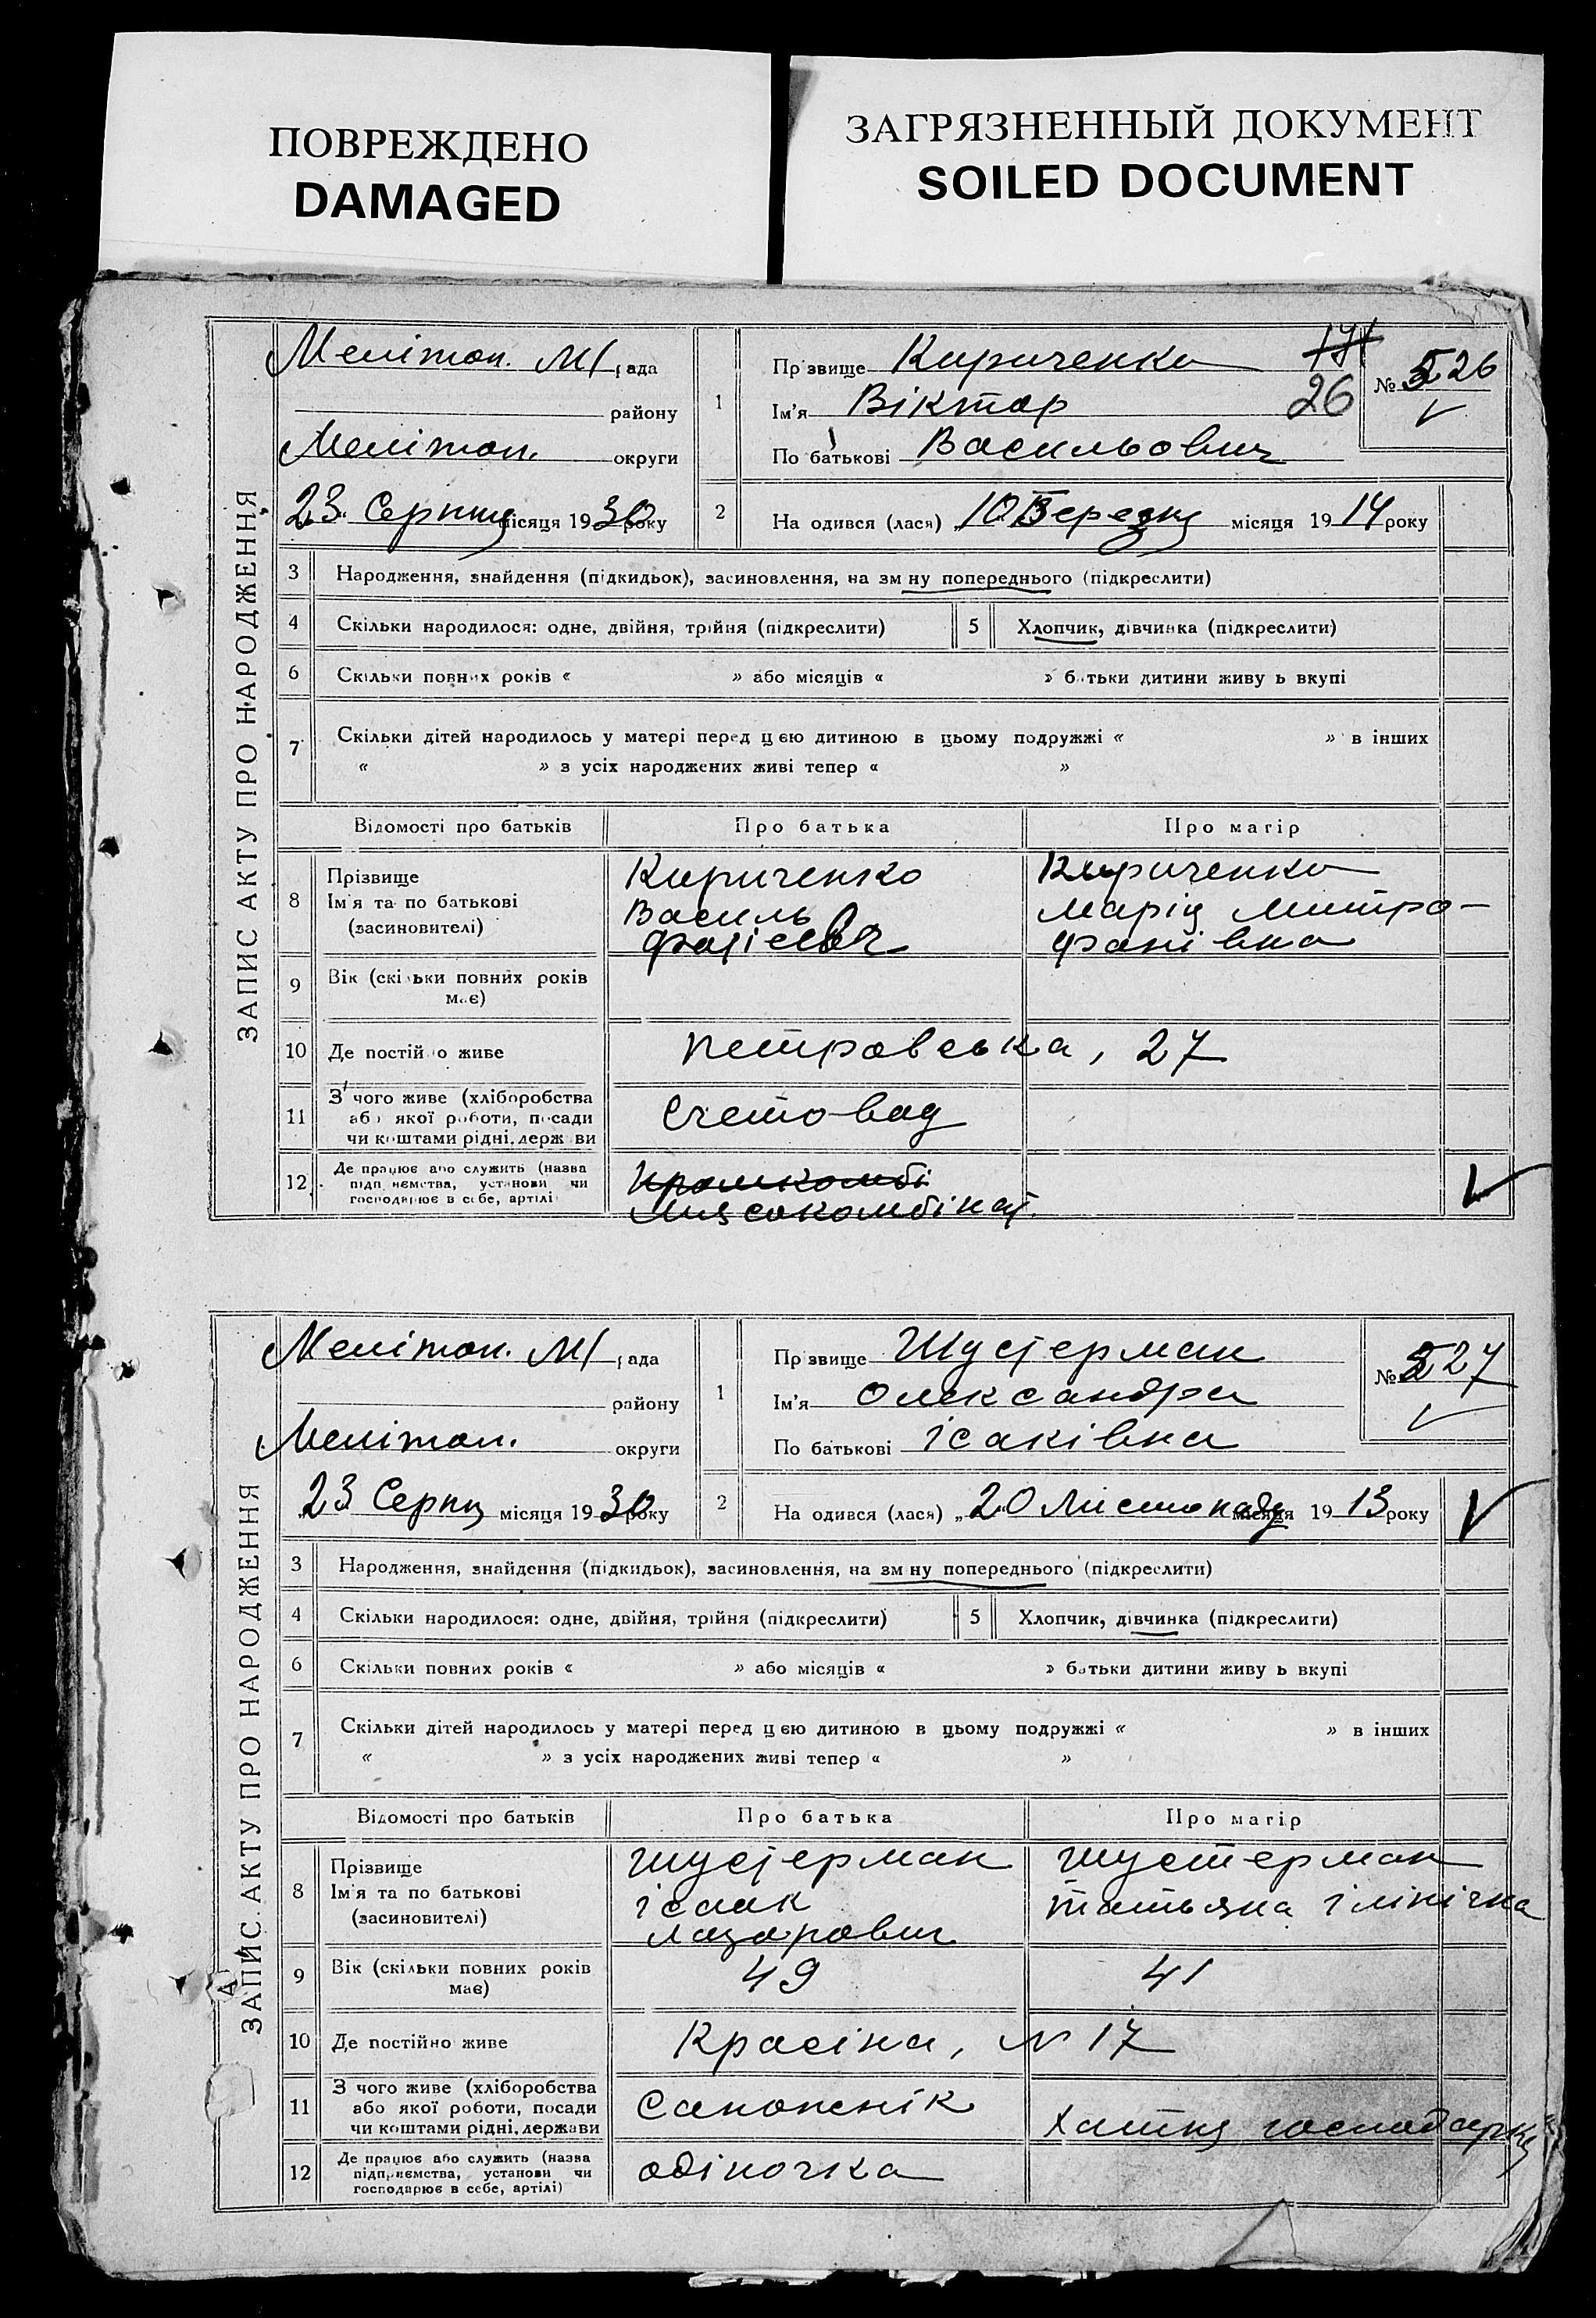 ПОВРЕЖДЕНО
DAMAGED
ЗАГРЯЗНЕННЫЙ ДОКУМЕНТ
SOILED DOCUMENT
ЗАПИС АКТУ ПРО НАРОДЖЕННЯ
Мелітоп. М/рада
району
Мелітоп. округи
23 Серпня місяця 1930 року
1
Прізвище Кириченко
Ім'я Віктор
26
По батькові Васильович
№ 526
2
На одився (лася) 10 Березня місяця 1914 року
3 Народження, знайдення (підкидьок), засиновлення, на зм ну попереднього (підкреслити)
4 Скільки народилося: одне, двійня, трійня (підкреслити)
5 Хлопчик, дівчинка (підкреслити)
6 Скільки повних років « » або місяців « » батьки дитини живу ь вкупі
7 Скільки дітей народилось у матері перед цією дитиною в цьому подружжі « » в інших
« » з усіх народжених живі тепер « »
Відомості про батьків Про батька Про матір
8 Прізвище
Ім'я та по батькові
(засиновителі)
Кириченко
Василь
Кириченко
Марія Митро-
фанівна
9 Вік (скільки повних років
має)
10 Де постійно живе Петровська, 27
11 З чого живе (хліборобства
або якої роботи, посади
чи коштами рідні, держ ви
Счетовод
12 Де працює або служить (назва
підприємства, установи чи
господарює в себе, артілі
Промкомбі
Мясокомбінат.
ЗАПИС АКТУ ПРО НАРОДЖЕННЯ
Мелітоп. М/рада
району
Мелітоп. округи
23 Серпня місяця 1930 року
1
Прізвище Шустерман
Ім'я Олександра
По батькові Ісаківна
№ 527
2
На одився (лася) „20 Листопаду місяця 1913 року
3 Народження, знайдення (підкидьок), засиновлення, на зм ну попереднього (підкреслити)
4 Скільки народилося: одне, двійня, трійня (підкреслити)
5 Хлопчик, дівчинка (підкреслити)
6 Скільки повних років « » або місяців « » батьки дитини живу ь вкупі
7 Скільки дітей народилось у матері перед цією дитиною в цьому подружжі « » в інших
« » з усіх народжених живі тепер « »
Відомості про батьків Про батька Про матір
8 Прізвище
Ім'я та по батькові
(засиновителі)
Шустерман
Ісаак
Лазарович
Шустерман
Татьяна Ілінічна
9 Вік (скільки повних років
має)
49
41
10 Де постійно живе Красіна, N 17
11 З чого живе (хліборобства
або якої роботи, посади
чи коштами рідні, держави
Сапожнік
Хатня господарка
12 Де працює або служить (назва
підприємства, установи чи
господарює в себе, артілі)
одіночка